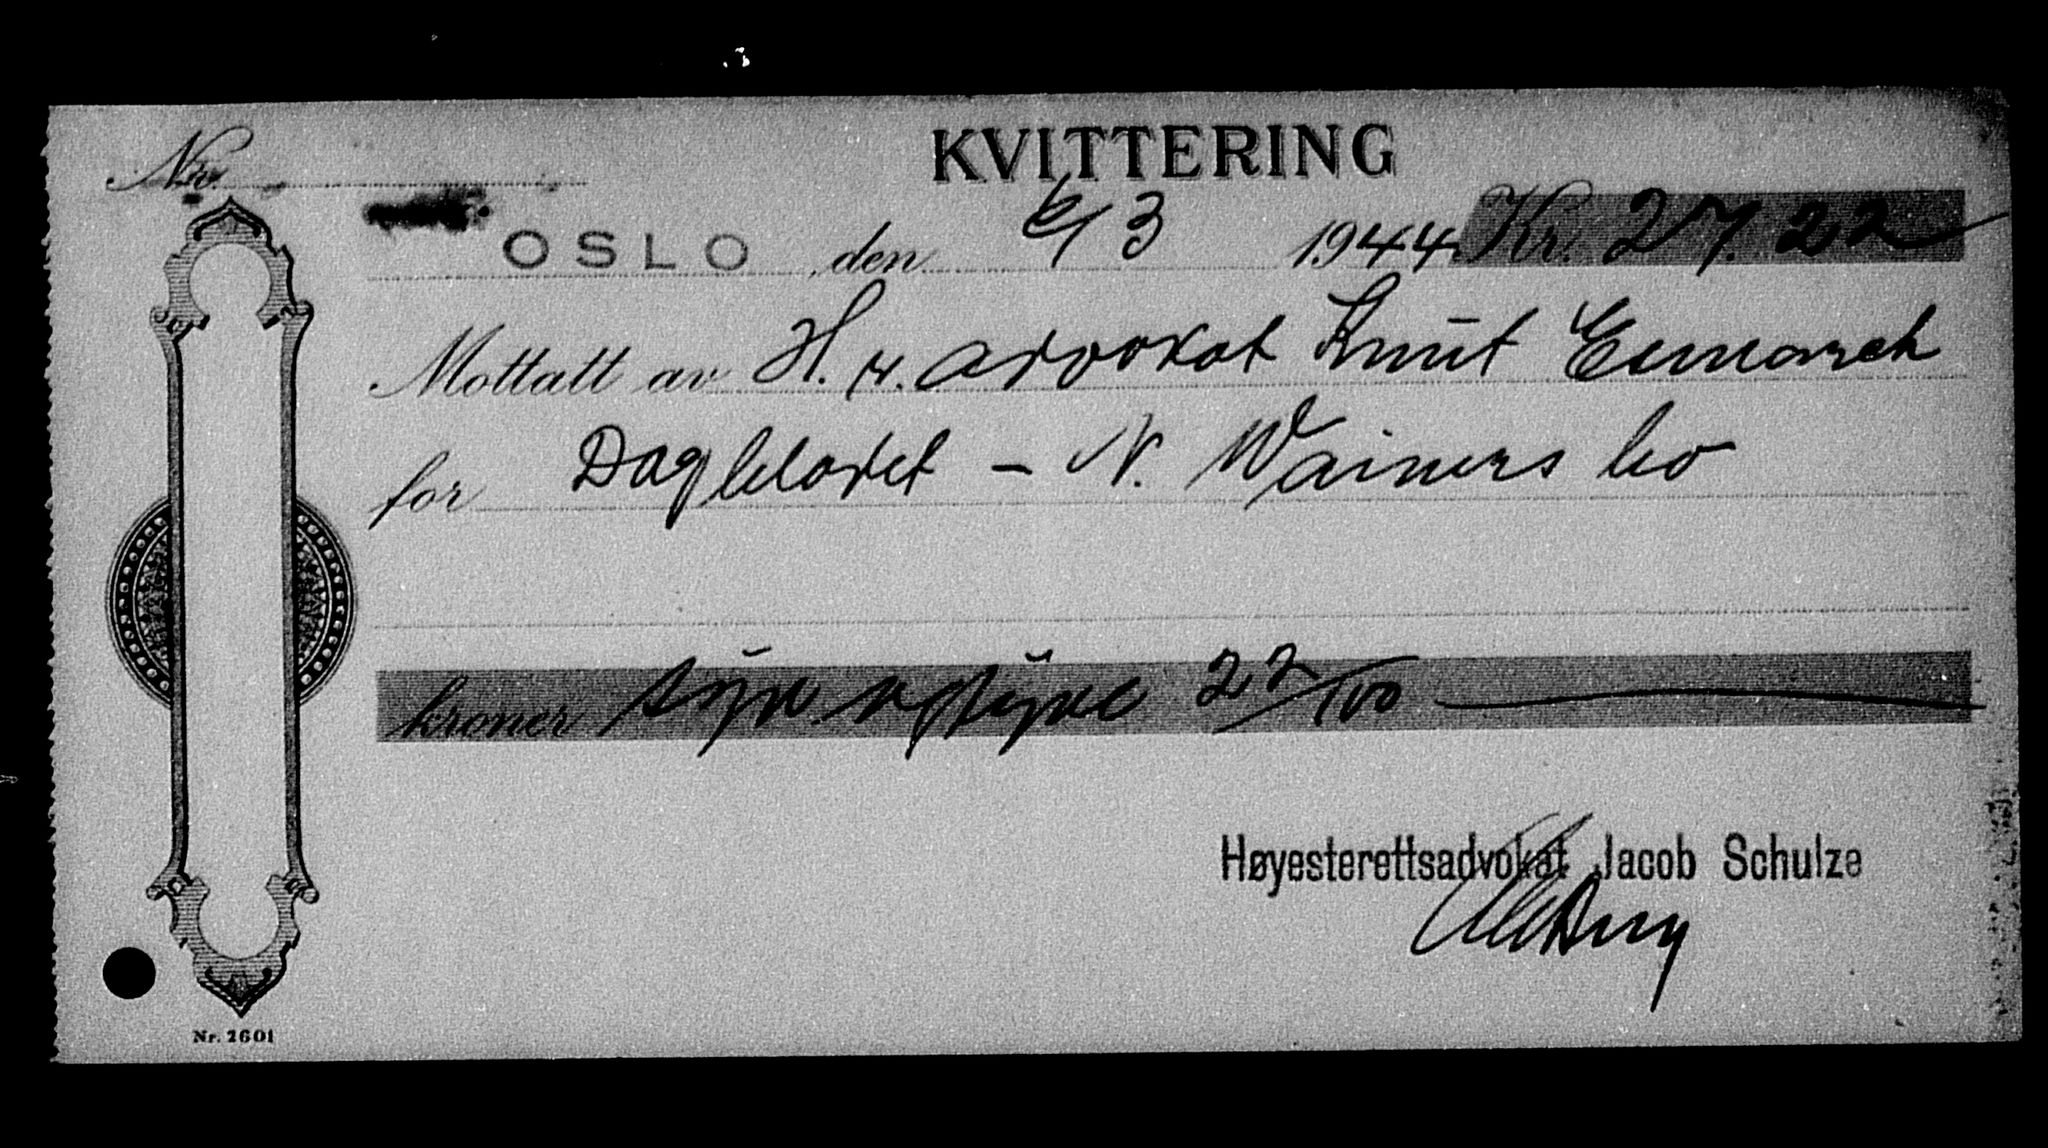 KVITTERING
Nr.
OSLO den 6/3 1944. Kr. 27.22
Mottatt av H. r. advokat Knut
for Dagbladet - N. Wainers bo
kroner syv og tyve 22/100
Høyesterettsadvokat Jacob Schulze
Nr. 2601